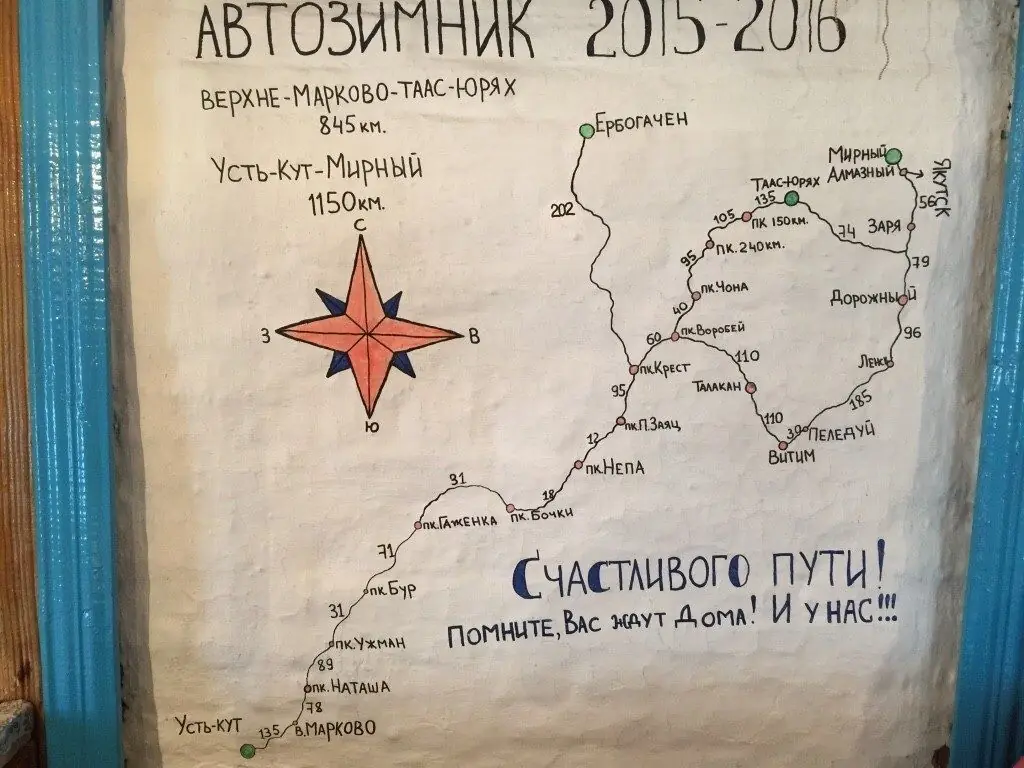 АВТОЗИМНИК 2015-2016
ВЕРХНЕ-МАРКОВО-ТААС-ЮРЯХ
845 КМ.
УСТЬ-КУТ-МИРНЫЙ
1150 КМ.
С
З
В
Ю
ЕРБОГАЧЕН
202
МИРНЫЙ
АЛМАЗНЫЙ
ЯКУТСК
56
ТААС-ЮРЯХ
135
105
ПК 150КМ.
74
ЗАРЯ
95
ПК. 240КМ.
79
ПК.ЧОНА
40
ДОРОЖНЫЙ
60
ПК.ВОРОБЕЙ
96
ПК.КРЕСТ
110
ТАЛАКАН
95
185
110
30
ПЕЛЕДУЙ
ВИТИМ
ПК.П.ЗАЯЦ
12
ПК.НЕПА
18
ПК.БОЧКИ
91
ПК.ГАЖЕНКА
71
ПК.БУР
31
ПК.УЖМАН
89
ПК.НАТАША
78
УСТЬ-КУТ
135
В.МАРКОВО
СЧАСТЛИВОГО ПУТИ!
ПОМНИТЕ, ВАС ЖДУТ ДОМА! И У НАС!!!